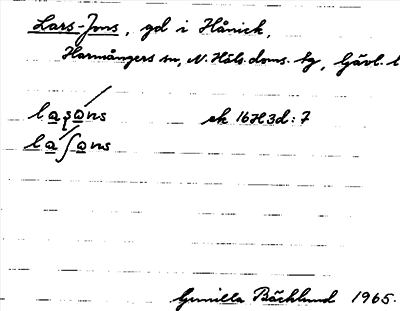 Lars-Jons, gd i Hånick,
Harmångers sn, N. Häls. doms. tg, Gävl. l
laʂans ek 16H3d:7
la∫ans
Gunilla Bäcklund 1965.